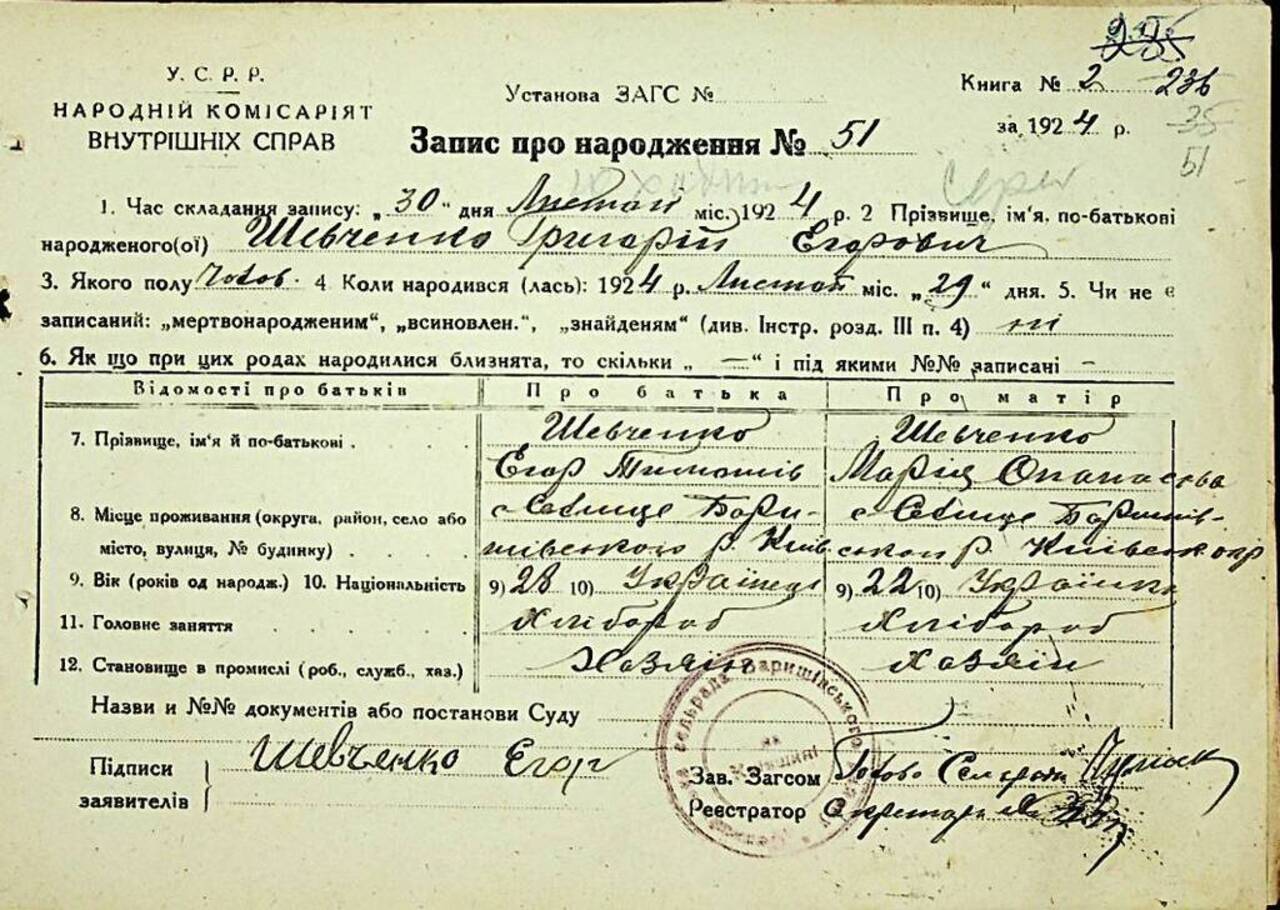 У. С. Р. Р.
НАРОДНІЙ КОМІСАРІЯТ
ВНУТРІШНІХ СПРАВ
Установа ЗАГС №
Книга № 2 236
за 1924 р. 35
51
Запис про народження № 51
1. Час складання запису: „30“ дня Листопад міс. 1924 р. 2 Прізвище, ім'я, по-батькові
народженого(ої) Шевченко Григорій Егорович
3. Якого полу Чолов. 4 Коли народився (лась): 1924 р. Листопад міс. „29“ дня. 5. Чи не є
записаний: „мертвонародженим“, „всиновлен.“, „знайденям“ (див. Інстр. розд. III п. 4) ні
6. Як що при цих родах народилися близнята, то скільки „ — “ і під якими №№ записані –
Відомості про батьків Про батька Про матір
7. Прізвище, ім'я й по-батькові . Шевченко Шевченко
Егор Тимошів Марія Опанасова
8. Місце проживання (округа, район, село або с Селище Бари- с Селище Баришів-
місто, вулиця, № будинку) . шівського р. Київ ськог р. Київськ окр
9. Вік (років од народж.) 10. Національність 9) 28 10) Українець 9) 22 10) Українка
11. Головне заняття Хлібороб Хлібороб
12. Становище в промислі (роб., служб., хаз.) Хазяїн Хазяїн
Назви и №№ документів або постанови Суду
Підписи
заявителів
Шевченко Егор
Зав. Загсом Голова Сельради
Реєстратор Секретар
сельрада Баришівського